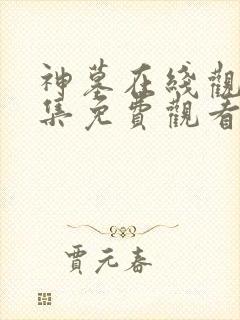 神墓在綫觀
集免費觀看
賈元春